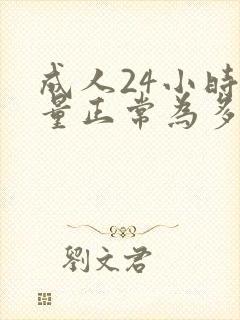 成人24小時
量正常為多
劉文君